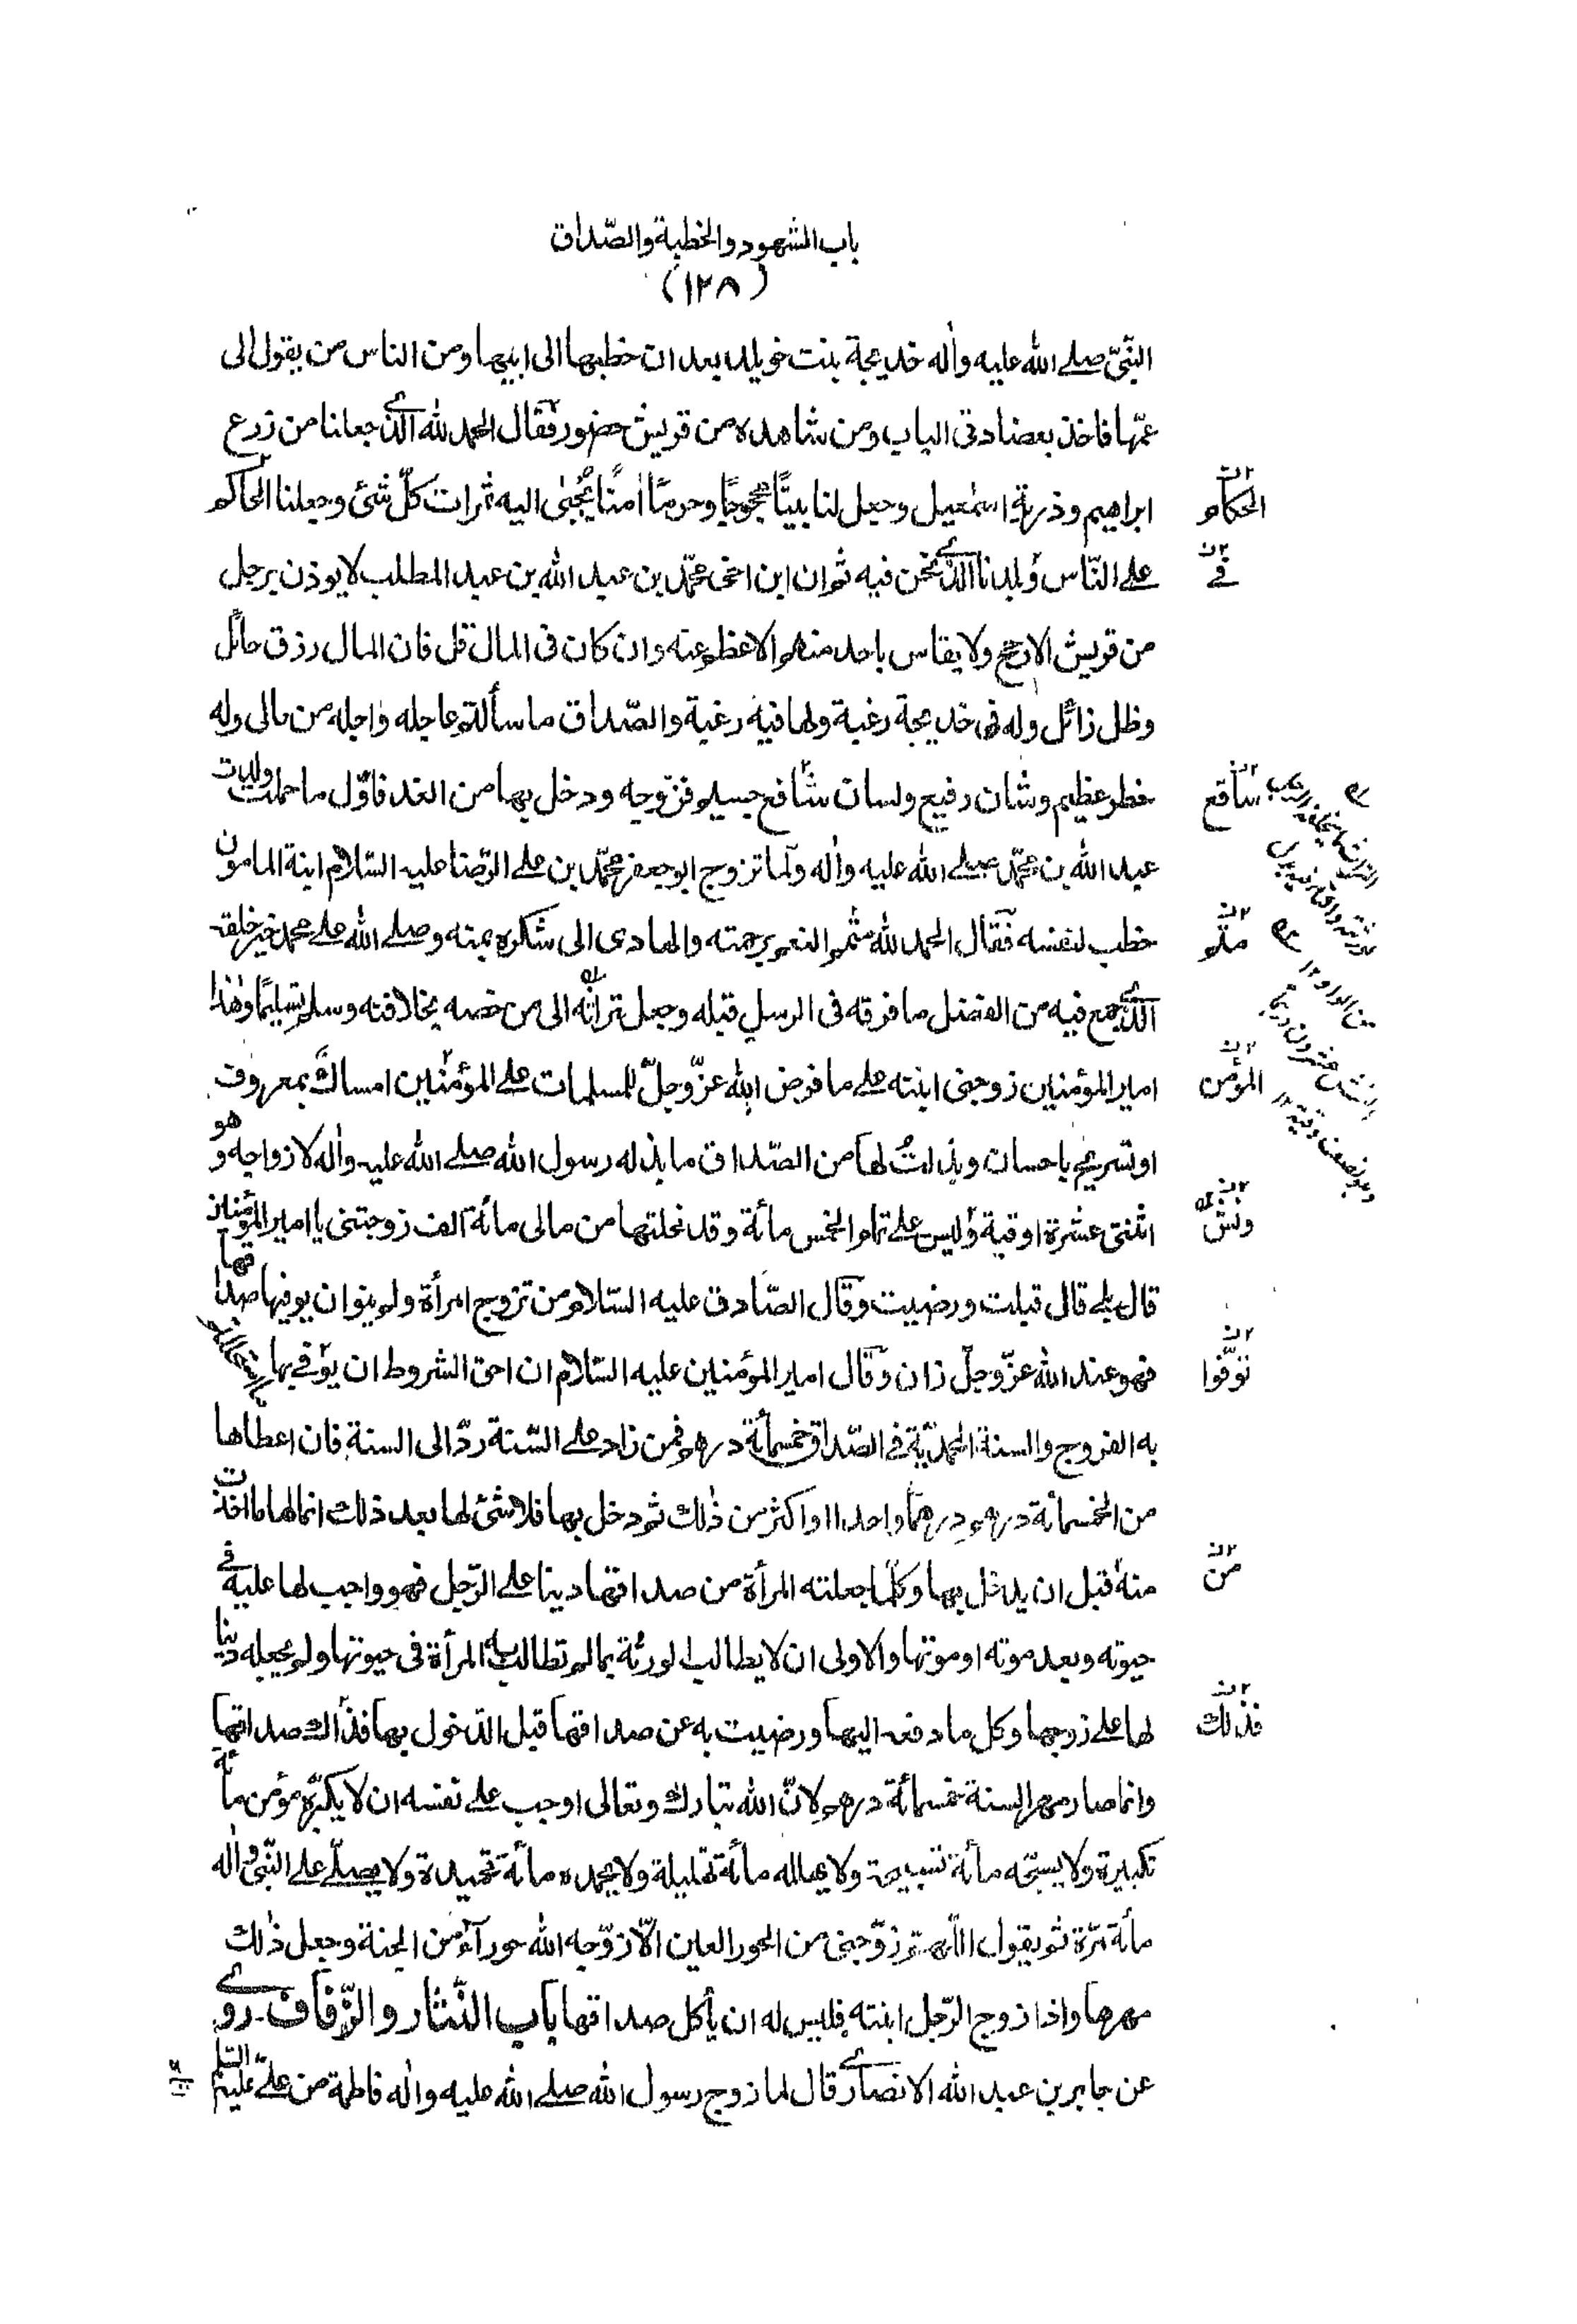 باب الشهود والخطبة والصداق
(١٢٨)
النّبىّ صلى الله عليه واٰله خديجة بنت خويلد بعد ان خطبها الى ابيها ومن الناس من يقول الى
عمّها فاخذ بعضادتى الباب ومن شاهده من قريش حضور فقال الحمد لله الّذى جعلنا من زرع
ابراهيم وذرية اسمٰعيل وجعل لنا بيتًا محجوجًا وحرمًا اٰمنًا يُجبىٰ اليه ثمرات كلّ شئ وجعلنا الحاكم
الحكام
على النّاس فى بلدنا الّذى نحن فيه ثم ان ابن اخى محمّد بن عبد الله بن عبد المطلب لا يوذن برجل
فى
من قريش الا رجح ولا يقاس باحد منهم الا عظم عنه وان كان فى المال قل فان المال رزق حائل
وظل زائل وله فى خديجة رغبة ولها فيه رغبة والصّداق ما سألتم عاجله واٰجله من مالى وله
خطر عظيم وشان رفيع ولسان شافع جسيم فزوجه ودخل بها من الغد فاوّل ما حملت ولدت
شافع
عبد الله بن محمّد صلى الله عليه واٰله ولما تزوج ابو جعفر محمّد بن على الرّضا عليه السّلام ابنة المامون
خطب لنفسه فقال الحمد لله متمّم النعم برحمته والهادى الى شكره بمنه وصلى الله على محمد خير خلقه
الّذى جمع فيه من الفضل ما فرقه فى الرسل قبله وجعل تراثه الى من خصه بخلافته وسلم تسليمًا وهٰذا
امير المؤمنين زوجنى ابنته على ما فرض الله عزّ وجلّ للمسلمات على المؤمنين امساك بمعروف
المؤمن
او تسريح باحسان وبذلتُ لها من الصّداق ما بذله رسول الله صلى الله عليه واٰله لازواجه وهو
اثنتى عشرة اوقية ونش على تمام الخمس مائة وقد نحلتها من مالى مائة الف زوجتنى يا امير المؤمنين
ونش
قال بلى قال قبلت ورضيت وقال الصّادق عليه السّلام من تزوج امرأة ولم ينو ان يوفيها صداقها
فهو عند الله عزّ وجلّ زان وقال امير المؤمنين عليه السّلام ان احق الشروط ان يوفى بها ما استحللتم
توفّوا
به الفروج والسنة المحمّديّة فى الصّداق خمسمائة درهم فمن زاد على السّنة ردّ الى السنة فان اعطاها
من الخمسمائة درهم درهمًا واحدا او اكثر من ذٰلك ثم دخل بها فلا شئ لها بعد ذٰلك انما لها ما اخذت
منه قبل ان يدخل بها وكلّما جعلته المرأة من صداقها دينا على الرّجل فهو واجب لها عليه فى
من
حيوته وبعد موته او موتها والاولى ان لا يطالب الورثة بما لم تطالب به المرأة فى حيوتها ولم يجعله دينا
لها على زوجها وكل ما دفعه اليها ورضيت به عن صداقها قبل الدّخول بها فذاك صداقها
فذلك
وانما صار مهر السنة خمسمائة درهم لانّ الله تبارك وتعالى اوجب على نفسه ان لا يكبّره مؤمن مائة
تكبيرة ولا يسبّحه مائة تسبيحة ولا يهلله مائة تهليلة ولا يحمده مائة تحميدة ولا يصلّى على النّبى واٰله
مائة مرّة ثم يقول اللّٰهم زوّجنى من الحور العين الّا زوّجه الله حوراء من الجنة وجعل ذٰلك
مهرها واذا زوج الرّجل ابنته فليس له ان يأكل صداقها باب النّثار والزّفاف روى
عن جابر بن عبد الله الانصارى قال لما زوج رسول الله صلى الله عليه واٰله فاطمة من علىّ عليهم السّلم